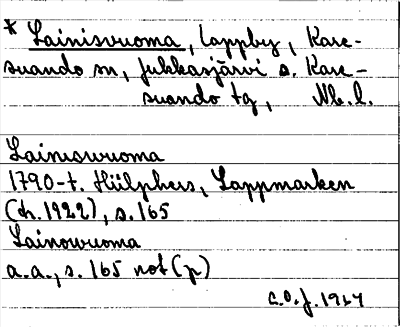 * Lainisvuoma, lappby, Kare-
suando sn, Jukkasjärvi o. Kare-
suando tg, Nb. l.
Lainiswuoma
1790-t. Hülphers, Lappmarken
(tr. 1922), s. 165
Lainowuoma
a. a., s. 165 not (p)
C.O.J. 1964